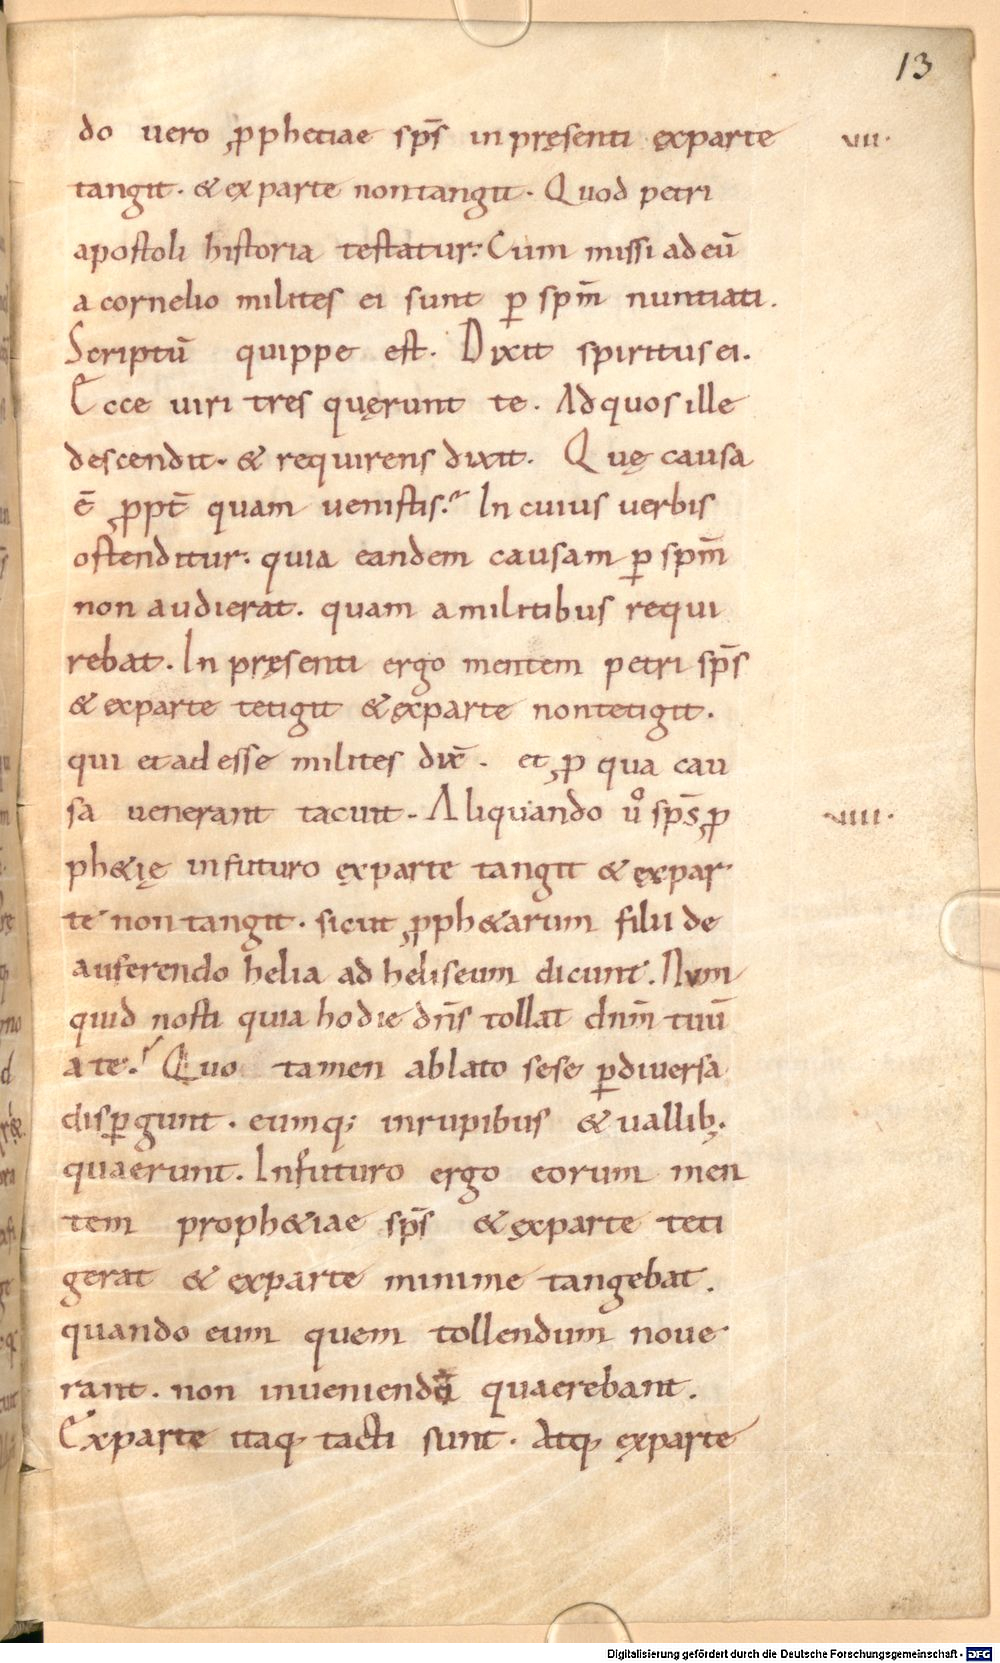 13
do uero ꝓphetiae sp̄s in pręsenti ex parte
vii·
tangit· & ex parte non tangit· Quod petri
apostoli historia testatur: Cum missi ad eū
a cornelio milites ei sunt ꝑ sp̄m nuntiati.
Scriptū quippe est· Dixit spiritus ei.
Ecce uiri tres quęrunt te· Ad quos ille
descendit· & requirens dixit. Quę causa
ē ꝓpt̄ quam uenistis? In cuius uerbis
ostenditur: quia eandem causam ꝑ sp̄m
non audierat. quam a militibus requi
rebat. In pręsenti ergo mentem petri sp̄s
& ex parte tetigit & ex parte non tetigit.
qui et adesse milites dix̄. et ꝓ qua cau
sa uenerant tacuit. Aliquando uͦ sp̄s ꝓ
viiii·
ph&ię in futuro ex parte tangit & ex par
te non tangit. sicut ꝓph&arum filii de
auferendo helia ad heliseum dicunt. Num
quid nosti quia hodie dn̄s tollat dn̄m tuū
a te? Quo tamen ablato sese ꝑ diuersa
disꝑgunt. eumq; in rupibus & uallib;.
quaerunt. In futuro ergo eorum men
tem proph&iae sp̄s & ex parte teti
gerat & ex parte minime tangebat.
quando eum quem tollendum noue
rant. non inueniendū quaerebant.
Ex parte itaq; tacti sunt· Atq; ex parte
Digitalisierung gefördert durch die Deutsche Forschungsgemeinschaft - DFG